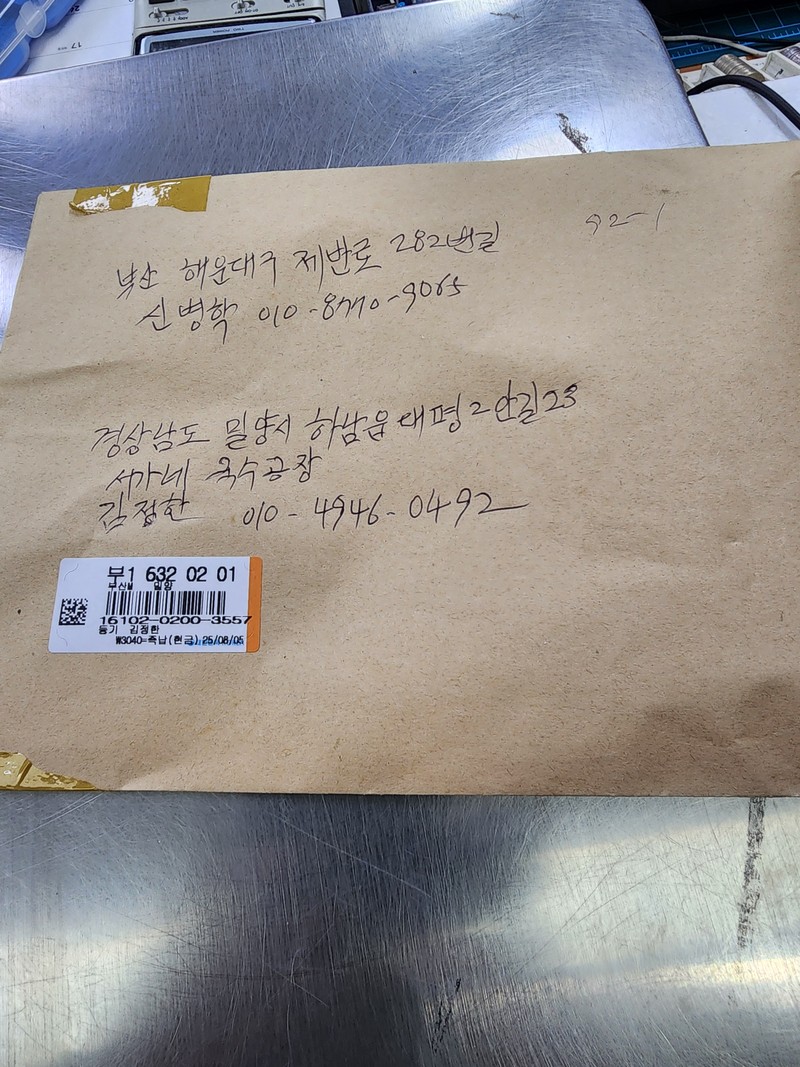 부산 해운대구 제반로 282번길 92-1
신병학 010-8770-9065
경상남도 밀양시 하남읍 대평2안길23
서가네 국수공장
김정한 010-4946-0492
부1 632 02 01
부산M 밀양
16102-0200-3557
등기 김정한
₩3040=즉납(현금) 25/08/05
17